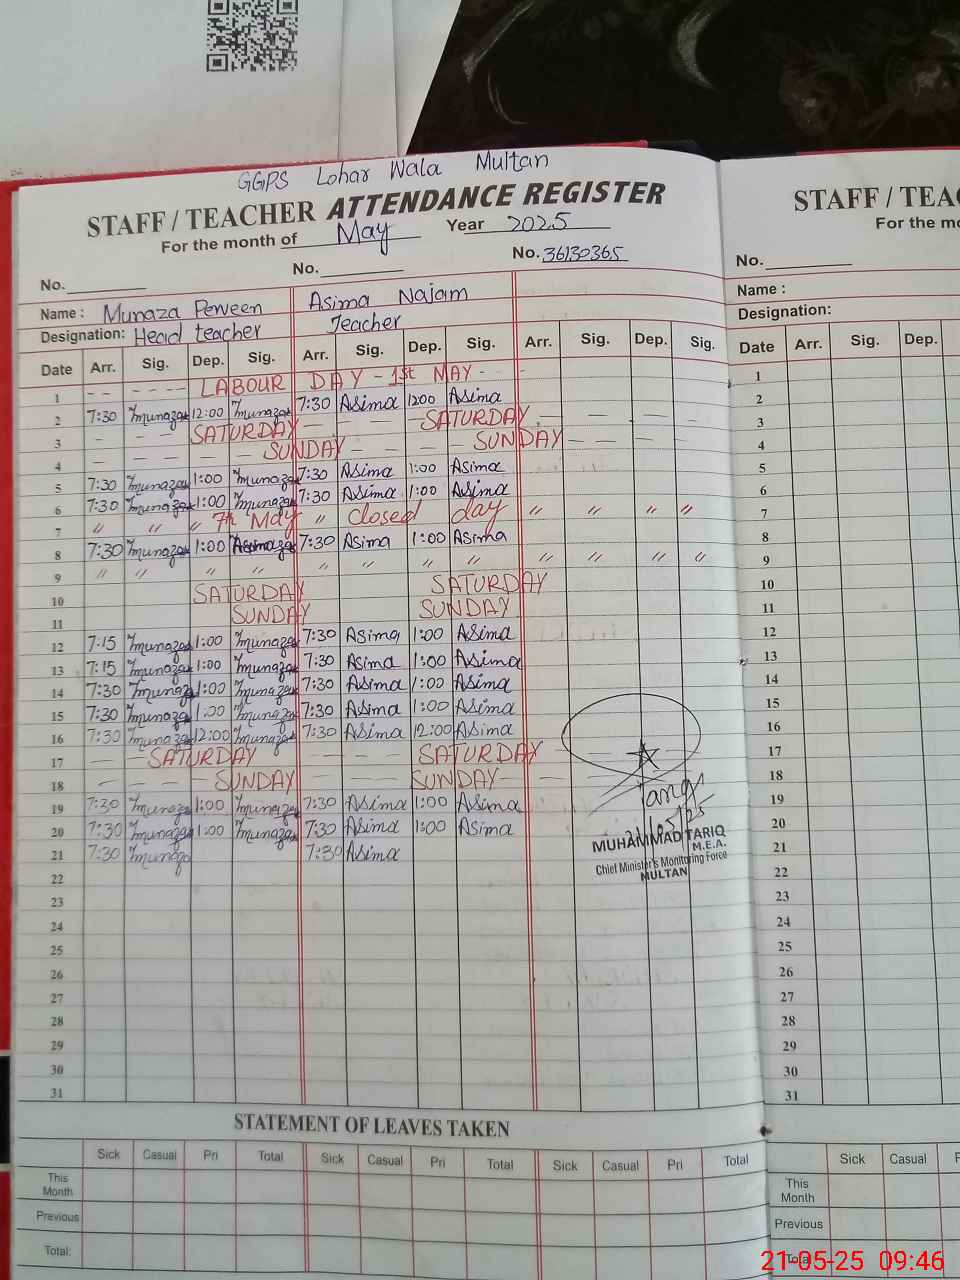 GGPS Lohar Wala Multan
STAFF / TEACHER ATTENDANCE REGISTER
For the month of May Year 2025
No. No. No. 36130365
Name : Munaza Perveen Asima Najam
Designation: Head teacher Teacher
Date Arr. Sig. Dep. Sig. Arr. Sig. Dep. Sig. Arr. Sig. Dep. Sig.
1 - - - - - - LABOUR DAY - 1st MAY - - -
2 7:30 Munaza 12:00 Munaza 7:30 Asima 1200 Asima
3 - - - SATURDAY - - - SATURDAY - - - -
4 - - - - SUNDAY - - - - SUNDAY - - -
5 7:30 Munaza 1:00 Munaza 7:30 Asima 1:00 Asima
6 7:30 Munaza 1:00 Munaza 7:30 Asima 1:00 Asima
7 " " " 7th May " Closed day " " " "
8 7:30 Munaza 1:00 7:30 Asima 1:00 Asima
9 " " " " " " " " " " " "
10 SATURDAY SATURDAY
11 SUNDAY SUNDAY
12 7:15 Munaza 1:00 Munaza 7:30 Asima 1:00 Asima
13 7:15 Munaza 1:00 Munaza 7:30 Asima 1:00 Asima
14 7:30 Munaza 1:00 Munaza 7:30 Asima 1:00 Asima
15 7:30 Munaza 1:00 Munaza 7:30 Asima 1:00 Asima
16 7:30 Munaza 12:00 Munaza 7:30 Asima 12:00 Asima
17 — — SATURDAY — — — SATURDAY —
18 — — — SUNDAY — — — SUNDAY — —
19 7:30 Munaza 1:00 Munaza 7:30 Asima 1:00 Asima
20 7:30 Munaza 1:00 Munaza 7:30 Asima 1:00 Asima
21 7:30 Munaza 7:30 Asima
22
23
24
25
26
27
28
29
30
31
Tariq
21/05/25
MUHAMMAD TARIQ
M.E.A.
Chief Minister's Monitoring Force
MULTAN
STATEMENT OF LEAVES TAKEN
Sick Casual Pri Total Sick Casual Pri Total Sick Casual Pri Total
This Month
Previous
Total:
STAFF / TEAC
For the mo
No.
Name :
Designation:
Date Arr. Sig. Dep.
1
2
3
4
5
6
7
8
9
10
11
12
13
14
15
16
17
18
19
20
21
22
23
24
25
26
27
28
29
30
31
Sick Casual
This Month
Previous
Total
21-05-25 09:46